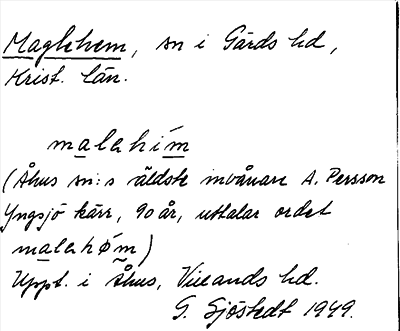 Maglehem, sn i Gärds hd,
Krist. län.
malahím
(Åhus sn:s äldste invånare A. Persson
Yngsjö kärr, 90 år, uttalar ordet
malahǿm)
Uppt. i Åhus, Villands hd.
G. Sjöstedt 1949.